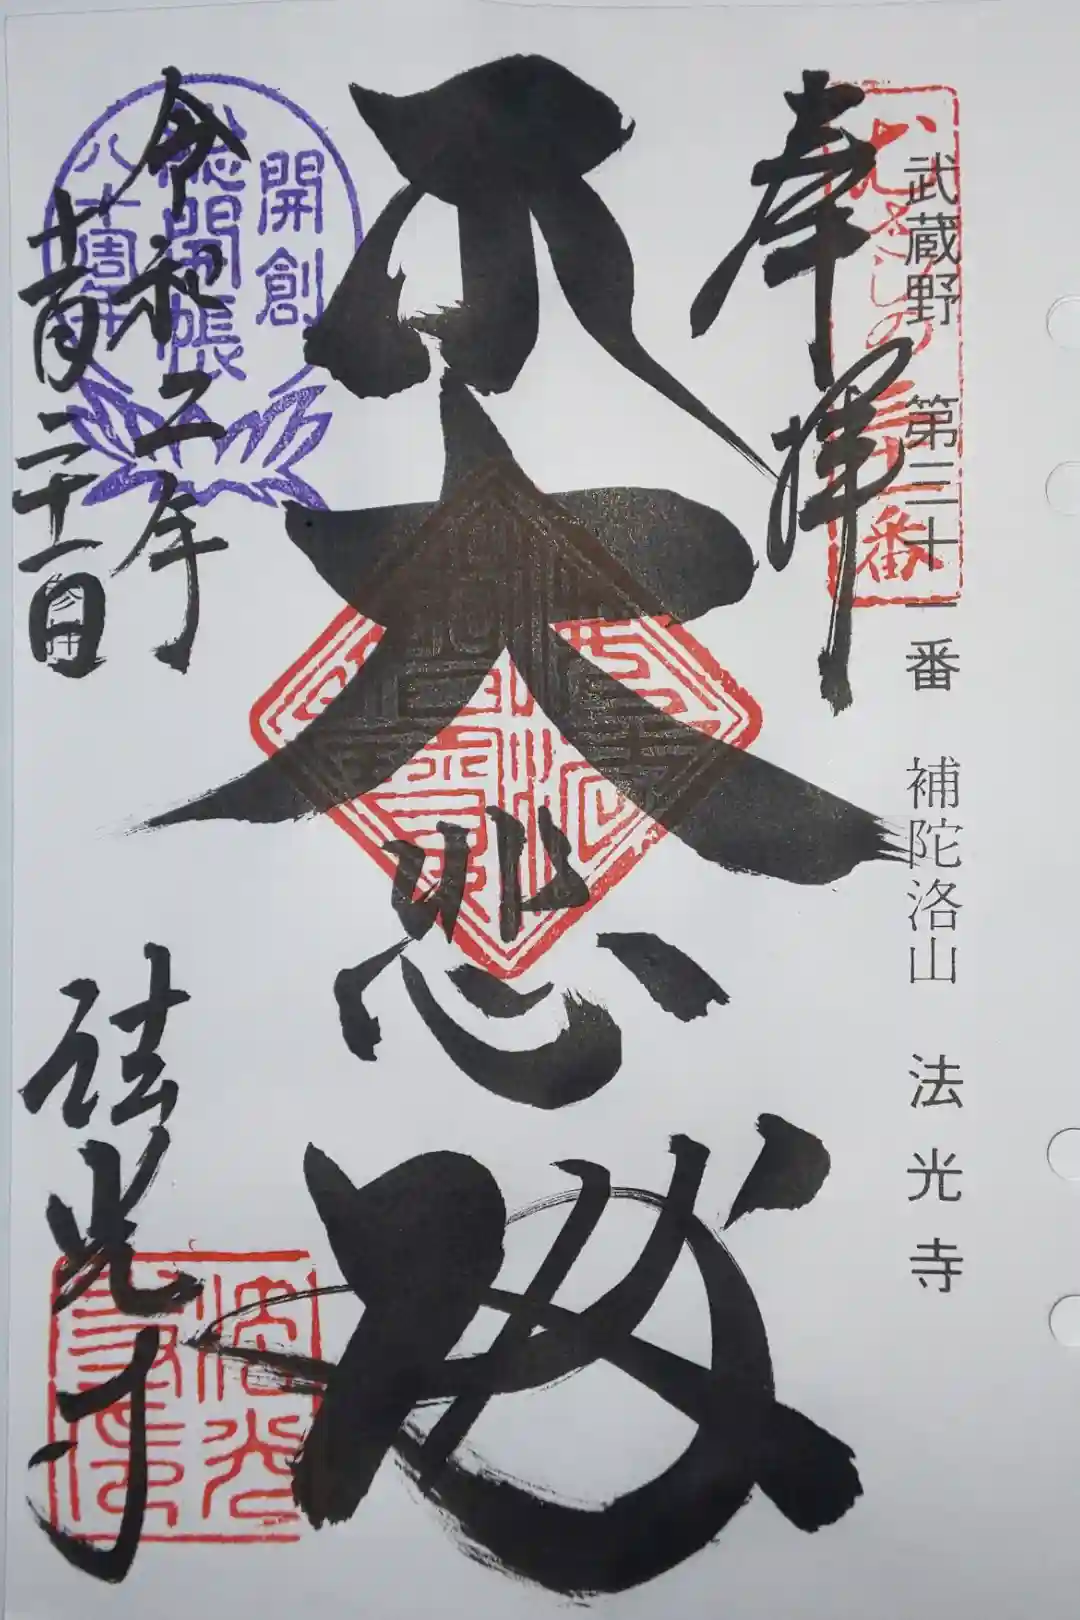 武蔵野 第三十一番 補陀洛山 法光寺
むさしの三十一番
奉拝
大悲殿
開創
総開帳
八十周年
令和二年
十一月二十一日
法光寺